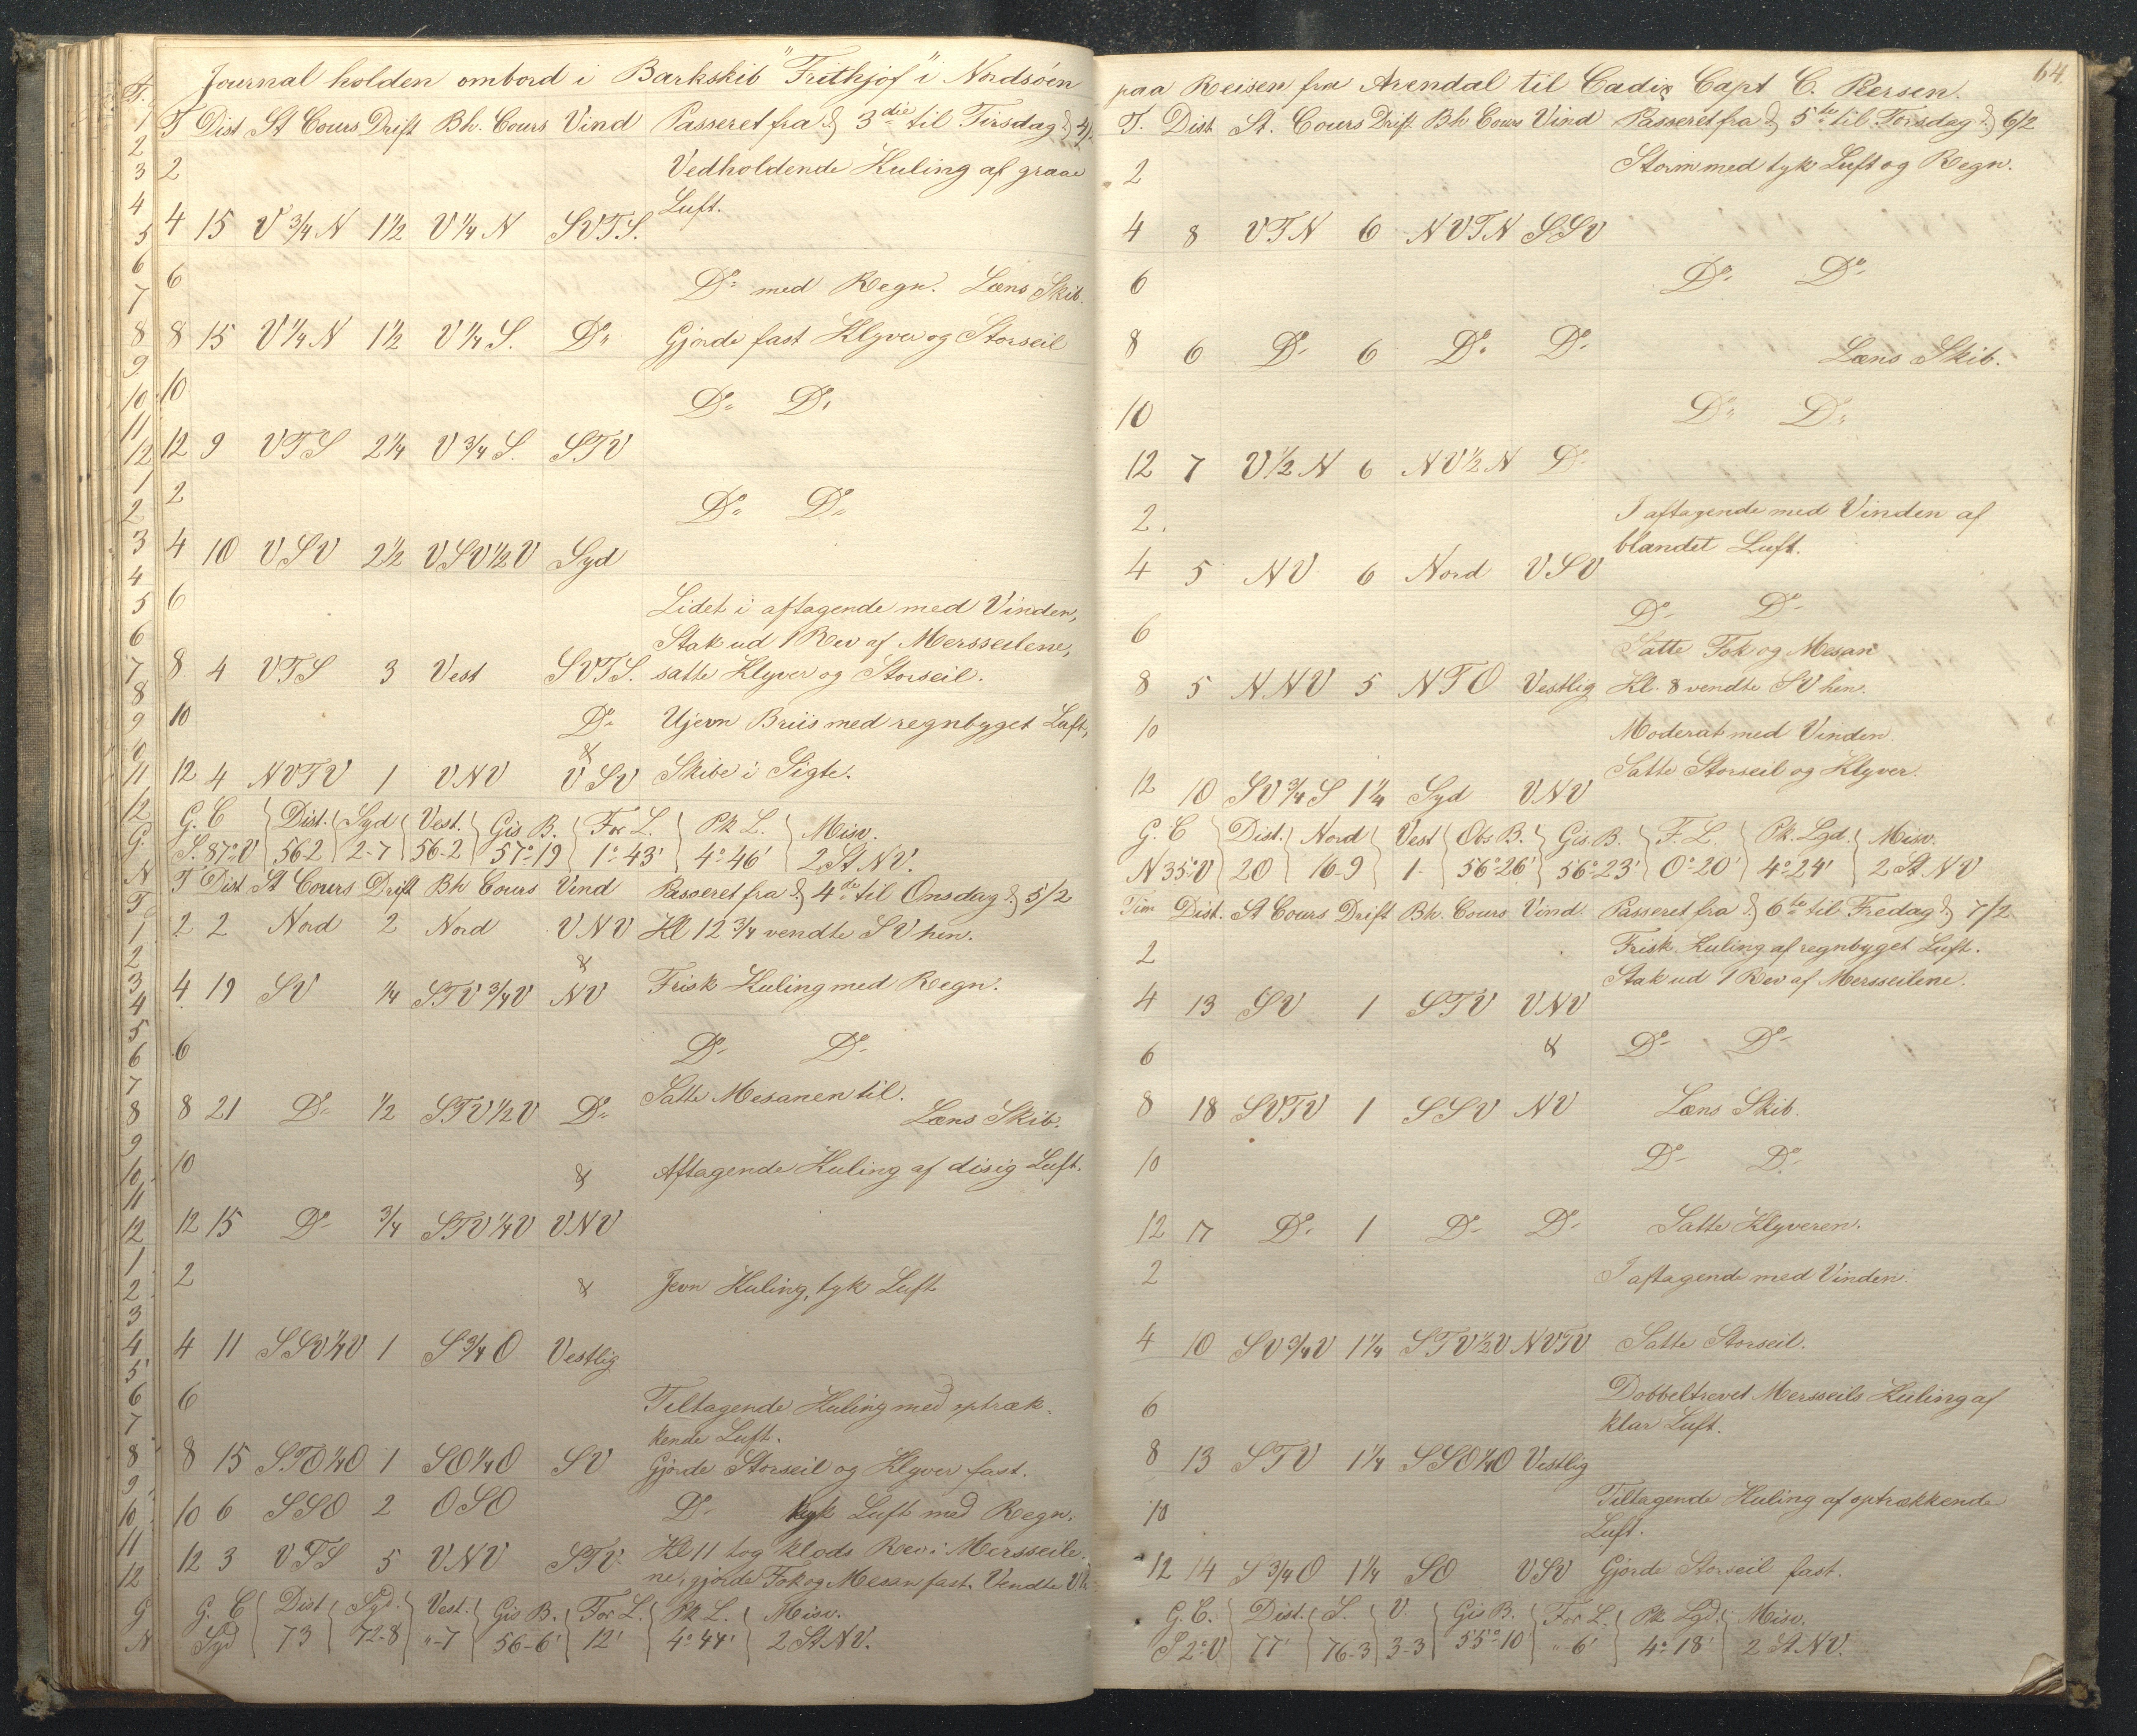 Journal holden ombord i Barkskib "Frithjof" i Nordsöen
T Dist St Cours Drift Bh. Cours Vind Passeret fra d. 3die til Tirsdag d. 4/2
2 Vedholdende Kuling af graae
Luft.
4 15 V 3/4 N 1 1/2 V 1/4 N SVTS.
6 Do med Regn. Læns Skib.
8 15 V 1/4 N 1 1/2 V 1/4 S. Do Gjorde fast Klyver og Storseil
10 Do Do
12 9 VTS 2 1/4 V 3/4 S. STV
2 Do Do
4 10 VSV 2 1/2 VSV 1/2 V Syd
6 Lidet i aftagende med Vinden,
Stak ud 1 Rev af Mersseilene,
8 4 VTS 3 Vest SVTS. satte Klyver og Storseil.
10 Do Ujevn Briis med regnbyget Luft,
&
12 4 NVTV 1 VNV VSV Skibe i Sigte.
G. C Dist. Syd Vest. Gis B. For L. Pk L. Misv.
S. 87° V 56-2 2-7 56-2 57°-19 1°-43' 4°-46' 2 St. NV.
T Dist St Cours Drift Bh Cours Vind Passeret fra d. 4de til Onsdag d. 5/2
2 2 Nord 2 Nord VNV Kl 12 3/4 vendte SV hen.
&
4 19 SV 1/4 STV 3/4 V NV Frisk Kuling med Regn.
6 Do Do
Satte Mesanen til.
8 21 Do 1/2 STV 1/2 V Do Læns Skib.
10 & Aftagende Kuling af disig Luft.
12 15 Do 3/4 STV 1/4 V VNV
2 & Jevn Kuling, tyk Luft
4 11 SSV 1/4 V 1 S 3/4 O Vestlig
6 Tiltagende Kuling med optræk-
kende Luft.
8 15 STO 1/4 O 1 SO 1/4 O SV Gjorde Storseil og Klyver fast.
10 6 SSO 2 OSO Do tyk Luft med Regn.
12 3 VTS 5 VNV STV Kl 11 tog klods Rev i Mersseile-
ne, gjorde Fok og Mesan fast. Vendte
G. C Dist Syd. Vest. Gis B. For L. Pk L. Misv.
Syd 73 72-8 "-7 56-6' 12' 4°-44' 2 St NV.
64.
paa Reisen fra Arendal til Cadix Capt C. Persen.
T. Dist St. Cours Drift Bh Cours Vind Passeret fra d. 5te til Torsdag d. 6/2
2 Storm med tyk Luft og Regn.
4 8 VTN 6 NVTN SSV
6 Do Do
8 6 Do 6 Do Do Læns Skib.
10 Do Do
12 7 V 1/2 N 6 NV 1/2 N Do
2. I aftagende med Vinden af
blandet Luft.
4 5 NV 6 Nord VSV
6 Do Do
Satte Fok og Mesan
8 5 NNV 5 NTO Vestlig Kl. 8 vendte SV hen.
10 Moderat med Vinden.
Satte Storseil og Klyver.
12 10 SV 3/4 S 1 1/4 Syd VNV
G. C Dist. Nord Vest Obs B. Gis. B. F. L. Pk. Lgd. Misv.
N 35° V 20 16-9 1- 56°-26' 56°-23' 0°-20' 4°-24' 2 St. NV
Tim Dist. St Cours Drift Bh. Cours Vind. Passeret fra d. 6te til Fredag d. 7/2
2 Frisk Kuling af regnbyget Luft.
Stak ud 1 Rev af Mersseilene.
4 13 SV 1 STV VNV
6 & Do Do
8 18 SVTV 1 SSV NV Læns Skib.
10 Do Do
12 17 Do 1 Do Do Satte Klyveren.
2 I aftagende med Vinden.
4 10 SV 3/4 V 1 1/4 STV 1/2 V NVTV Satte Storseil.
6 Dobbeltrevet Mersseils Kuling af
klar Luft.
8 13 STV 1 1/4 SSO 1/4 O Vestlig
10 Tiltagende Kuling af optrækkende
Luft.
12 14 S 3/4 O 1 1/4 SO VSV Gjorde Storseil fast.
G. C. Dist. S. V. Gis B. For L. Pk Lgd. Misv.
S 2° V 77' 76-3 3-3 55°-10' "-6' 4°-18' 2 St. NV.